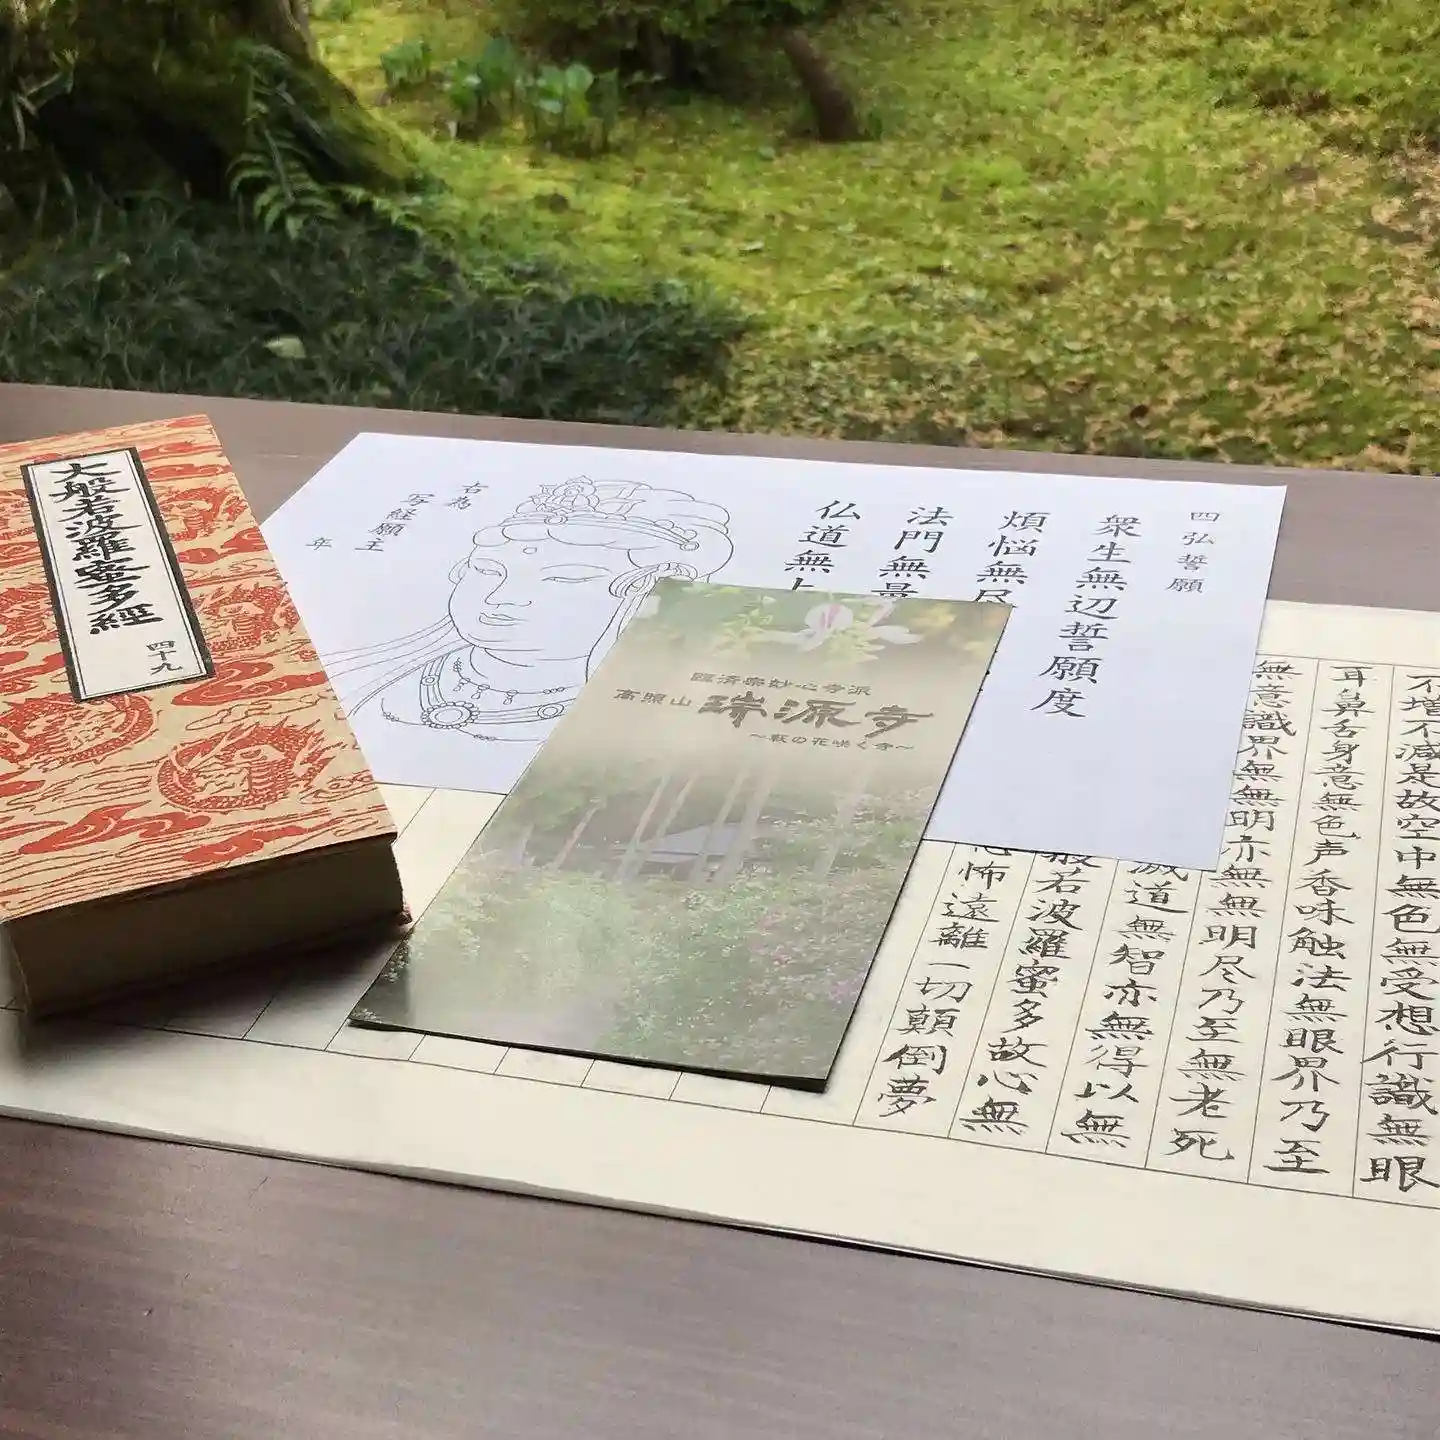 大般若波羅蜜多經
四十九
四弘誓願
衆生無辺誓願度
煩悩無尽
法門無量
仏道無上
右為
写経願主
年
臨済宗妙心寺派
高照山 瑞源寺
〜萩の花咲く寺〜
不増不減是故空中無色無受想行識無眼
耳鼻舌身意無色声香味触法無眼界乃至
無意識界無無明亦無無明尽乃至無老死
滅道無智亦無得以無
般若波羅蜜多故心無
怖遠離一切顛倒夢